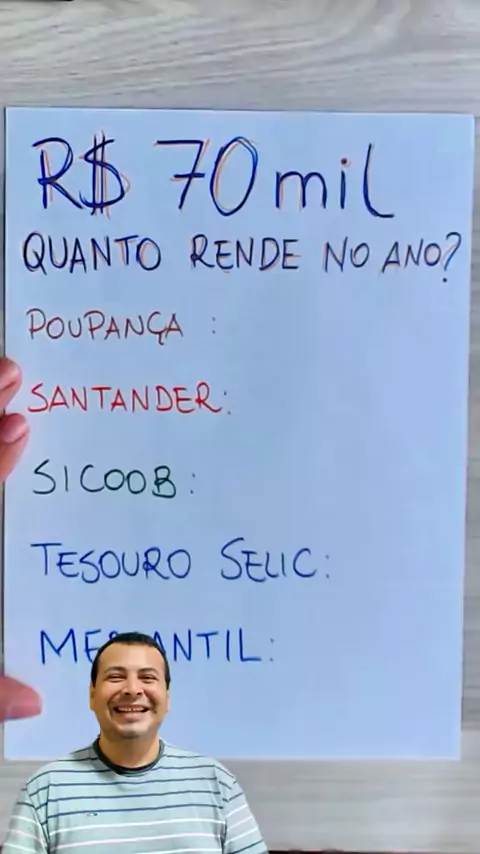 R$ 70 mil
QUANTO RENDE NO ANO?
POUPANÇA :
SANTANDER:
SICOOB:
TESOURO SELIC:
MERCANTIL: